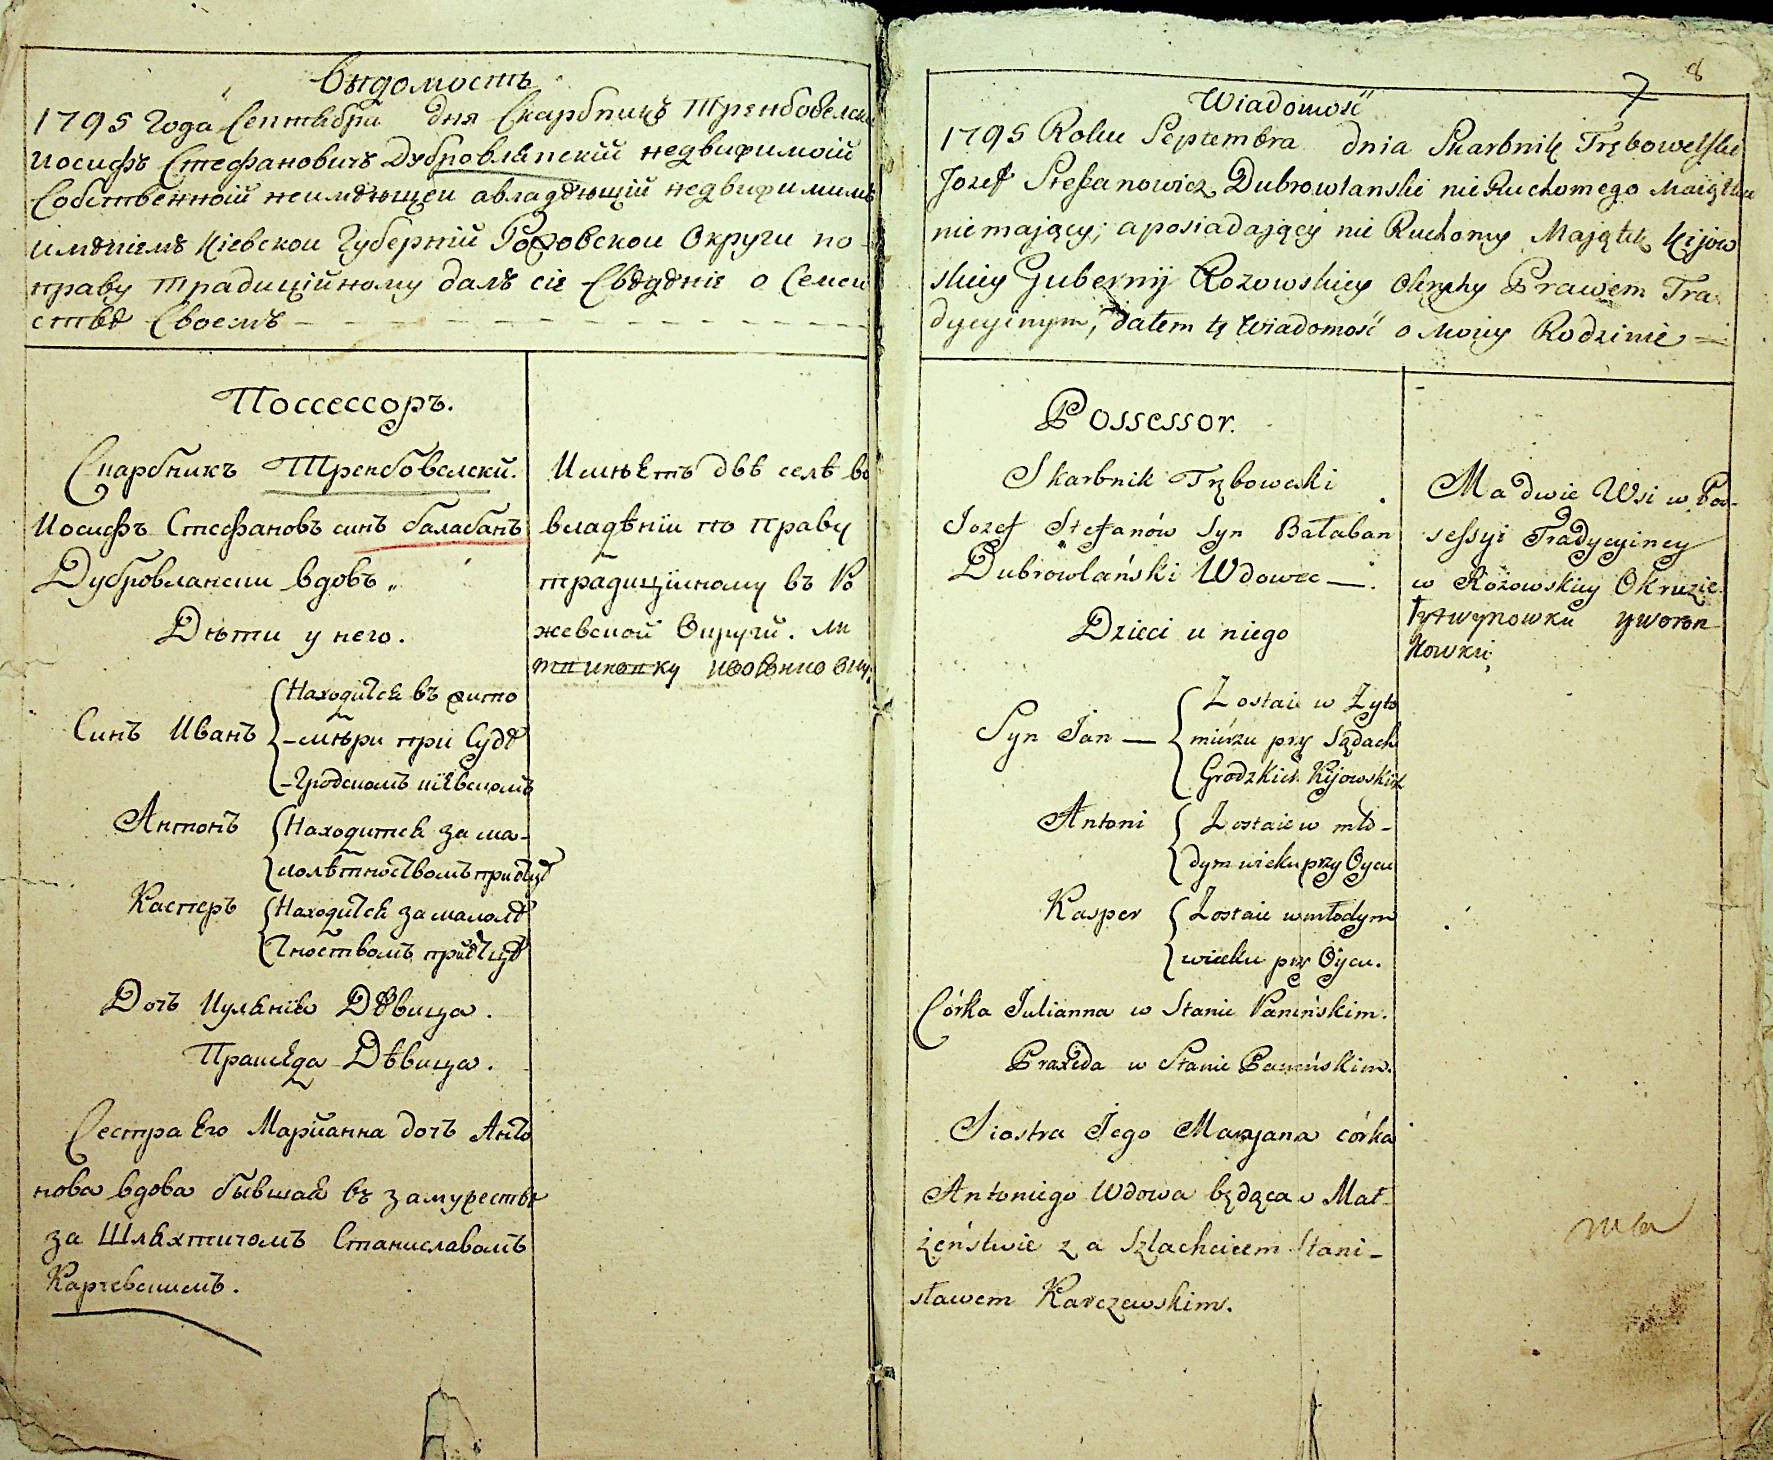 Вѣдомость
1795 Года Сентѣбрѣ дня Скарбникъ Трембовелски
Иосифъ Стефановичъ Дубровлянскій недвижимоій
Собственноій неимѣющеи авладѣющій недвижимимъ
имѣніемъ Кіевскои Губерніи Рожовскои Округи по
праву традиційному далъ сіе Свѣдѣніе о Семеи
ствѣ Своемъ
Поссессоръ.
Скарбникъ Трембовелски.
Иосифъ Стефановъ синъ балабанъ
Дубровлански вдовъ
Дѣти у него.
Синъ Иванъ
Находится въ жито
-мѣри при Судѣ
-Гродскомъ кіевскомъ
Антонъ
Находится за ма-
лолѣтностьвомъ при отцѣ
Касперъ
Находится за малолѣ
тностьвомъ при отцѣ
Дочъ Иуліянна Дѣвица.
Праксѣда Дѣвица.
Сестра Его Марйанна дочъ Анто
нова вдова бывшая въ замужествѣ
за Шляхтичомъ Станиславомъ
Карчевскимъ.
Имѣетъ двѣ селѣ во
владѣніи по праву
традиціиному въ Ро
жевской Округи.
8
7
Wiadomość
1795 Roku Septembra dnia Skarbnik Trębowelski
Jozef Stefanowicz Dubrowlanski nie Ruchomego Maiątku
niemaiący; a posiadaiący nie Ruchomy Maiątek Kijow
skiey Gubernij Rozowskiey Okruhy Prawem Tra
dycyinym, dałem tę Wiadomość o Moiey Rodzinie
Possessor.
Skarbnik Trębowelski
Jozef Stefanów Syn Bałaban
Dubrowlański Wdowec
Dzieci u niego
Syn Jan
Zostaie w Żyto
mierzu przy Sądach
Grodzkich Kijowskich
Antoni
Zostaie w mło-
dym wieku przy Oycu
Kasper
Zostaie w młodym
wieku przy Oycu.
Córka Julianna w Stanie Panińskim.
Praxeda w Stanie Panińskim.
Siostra Jego Maryana córka
Antoniego Wdowa będąca w Mał-
żeństwie za Szlachcicem Stani-
sławem Karczewskim.
Ma dwie Wsi w Pos-
sessyi Tradycyiney
w Rożowskiey Okruzie
Łytwynowku y Woron
Kowku